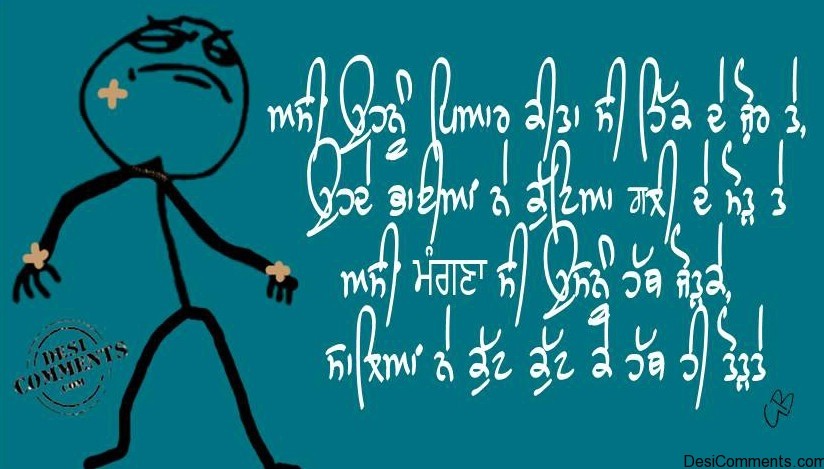 ਅਸੀਂ ਉਹਨੂੰ ਪਿਆਰ ਕੀਤਾ ਸੀ ਹਿੱਕ ਦੇ ਜ਼ੋਰ ਤੇ,
ਉਹਦੇ ਭਾਈਆਂ ਨੇ ਕੁੱਟਿਆ ਗਲੀ ਦੇ ਮੋੜ ਤੇ
ਅਸੀਂ ਮੰਗਣਾ ਸੀ ਉਸਨੂੰ ਹੱਥ ਜੋੜਕੇ,
ਸਾਲਿਆਂ ਨੇ ਕੁੱਟ ਕੁੱਟ ਕੇ ਹੱਥ ਹੀ ਤੋੜਤੇ
DESI
COMMENTS
.COM
GB
DesiComments.com